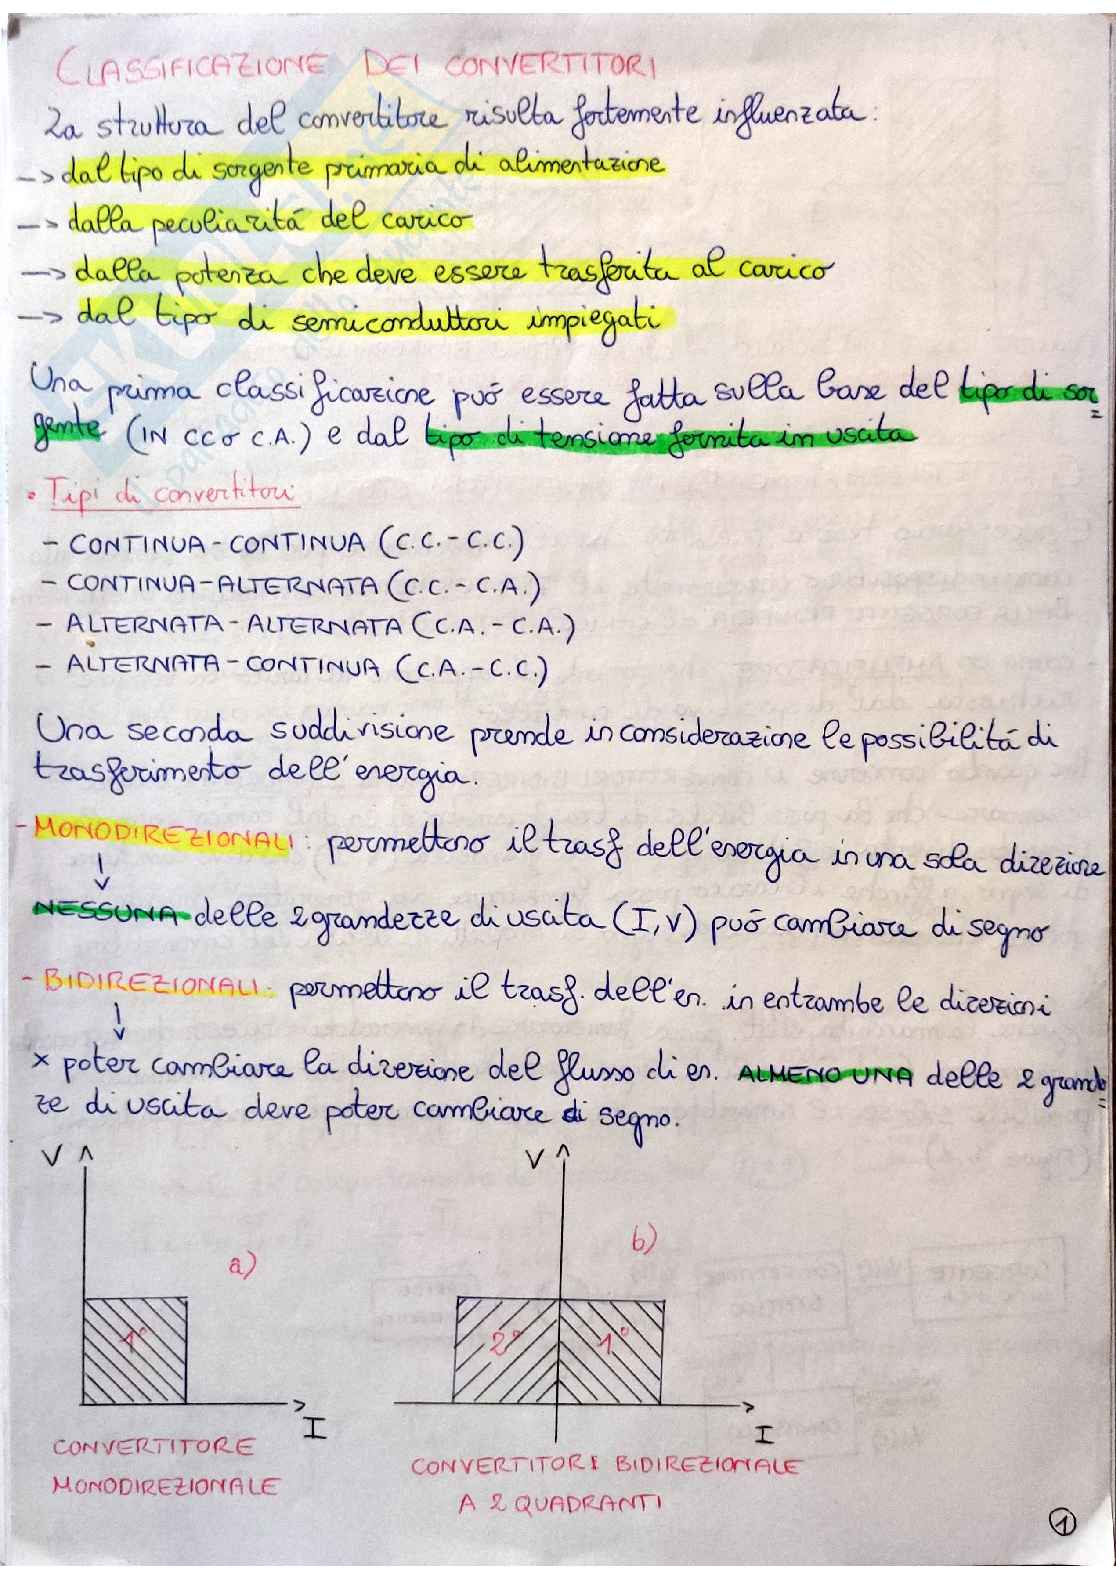 CLASSIFICAZIONE DEI CONVERTITORI
La struttura del convertitore risulta fortemente influenzata:
-> dal tipo di sorgente primaria di alimentazione
-> dalla peculiaritá del carico
-> dalla potenza che deve essere trasferita al carico
-> dal tipo di semiconduttori impiegati
Una prima classificazione puó essere fatta sulla base del tipo di sor=
gente (IN CC o C.A.) e dal tipo di tensione fornita in uscita
• Tipi di convertitori
- CONTINUA-CONTINUA (C.C.-C.C.)
- CONTINUA-ALTERNATA (C.C.-C.A.)
- ALTERNATA-ALTERNATA (C.A.-C.A.)
- ALTERNATA-CONTINUA (C.A.-C.C.)
Una seconda suddivisione prende in considerazione le possibilitá di
trasferimento dell'energia.
- MONODIREZIONALI: permettono il trasf dell'energia in una sola direzione
↓
NESSUNA delle 2 grandezze di uscita (I,V) puó cambiare di segno
- BIDIREZIONALI: permettono il trasf. dell'en. in entrambe le direzioni
↓
x poter cambiare la direzione del flusso di en. ALMENO UNA delle 2 grandez=
ze di uscita deve poter cambiare di segno.
V
V
a)
b)
1°
2°
1°
I
I
CONVERTITORE
MONODIREZIONALE
CONVERTITORI BIDIREZIONALE
A 2 QUADRANTI
1